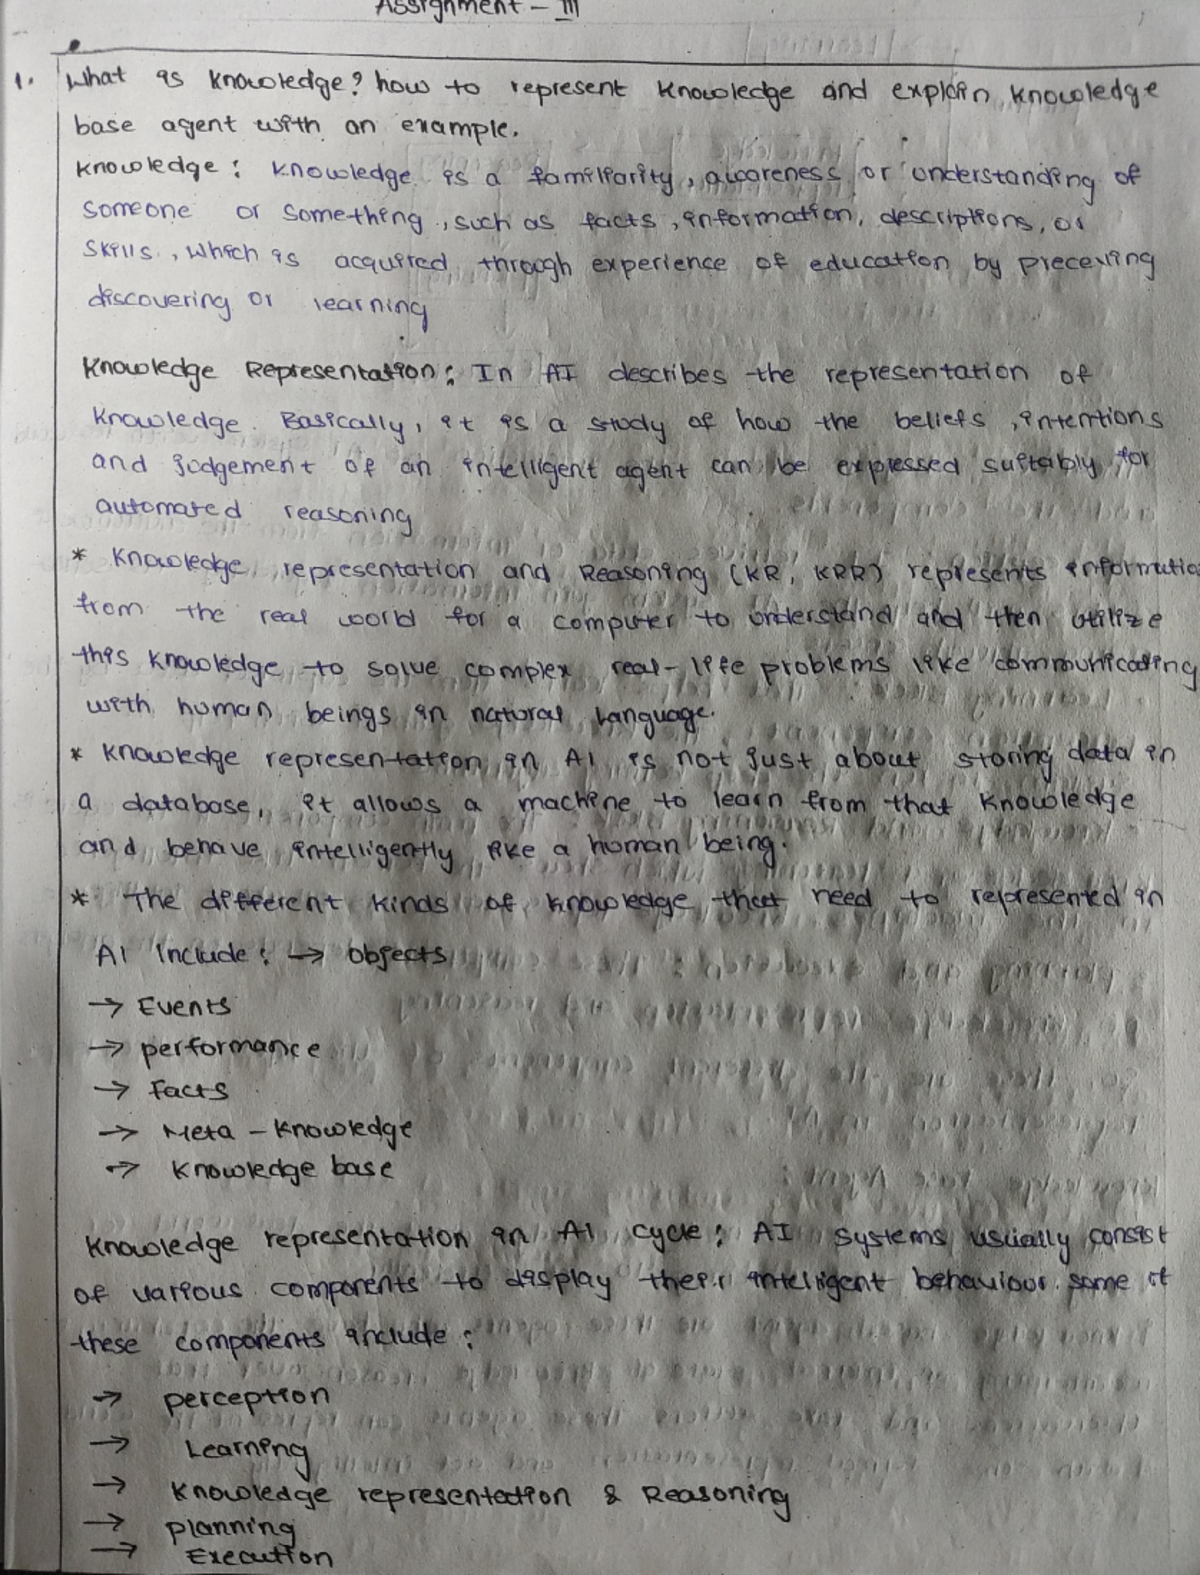 Assignment - III
1. What is knowledge? how to represent knowledge and explain knowledge
base agent with an example.
Knowledge: Knowledge is a familiarity, awareness or understanding of
someone or something, such as facts, information, descriptions, or
skills, which is acquired through experience of education by preceving
discovering or learning
Knowledge Representation: In AI describes the representation of
knowledge. Basically, it is a study of how the beliefs, intentions
and judgement of an intelligent agent can be expressed suitably for
automated reasoning
* Knowledge representation and Reasoning (KR, KRR) represents informatio
from the real world for a computer to understand and then utilize
this knowledge to solve complex real-life problems like communicating
with human beings in natural language.
* Knowledge representation in AI is not just about storing data in
a database, it allows a machine to learn from that knowledge
and behave intelligently like a human being.
* The different kinds of knowledge that need to represented in
AI Include: → Objects
→ Events
→ performance
→ facts
→ Meta - Knowledge
→ Knowledge base
Knowledge representation in AI cycle: AI systems usually consist
of various components to display their intelligent behaviour. some of
these components include:
→ perception
→ Learning
→ Knowledge representation & Reasoning
→ planning
→ Execution